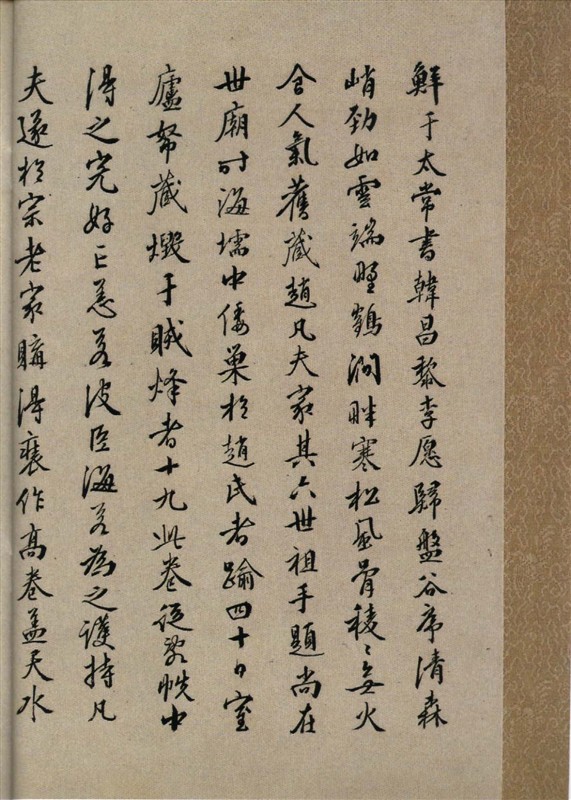 鮮于太常書韓昌黎李愿歸盤谷序清森
峭勁如雲端野鶴澗畔寒松風骨稜〻無火
食人氣舊藏趙凡夫家其六世祖手題尚在
世廟時海壖中倭巢於趙氏者踰四十日室
廬帑藏燬于賊烽者十九此卷從敗帙中
得之完好亡恙若波臣海若為之護持凡
夫遂於宗老家購得襲作高卷蓋天水